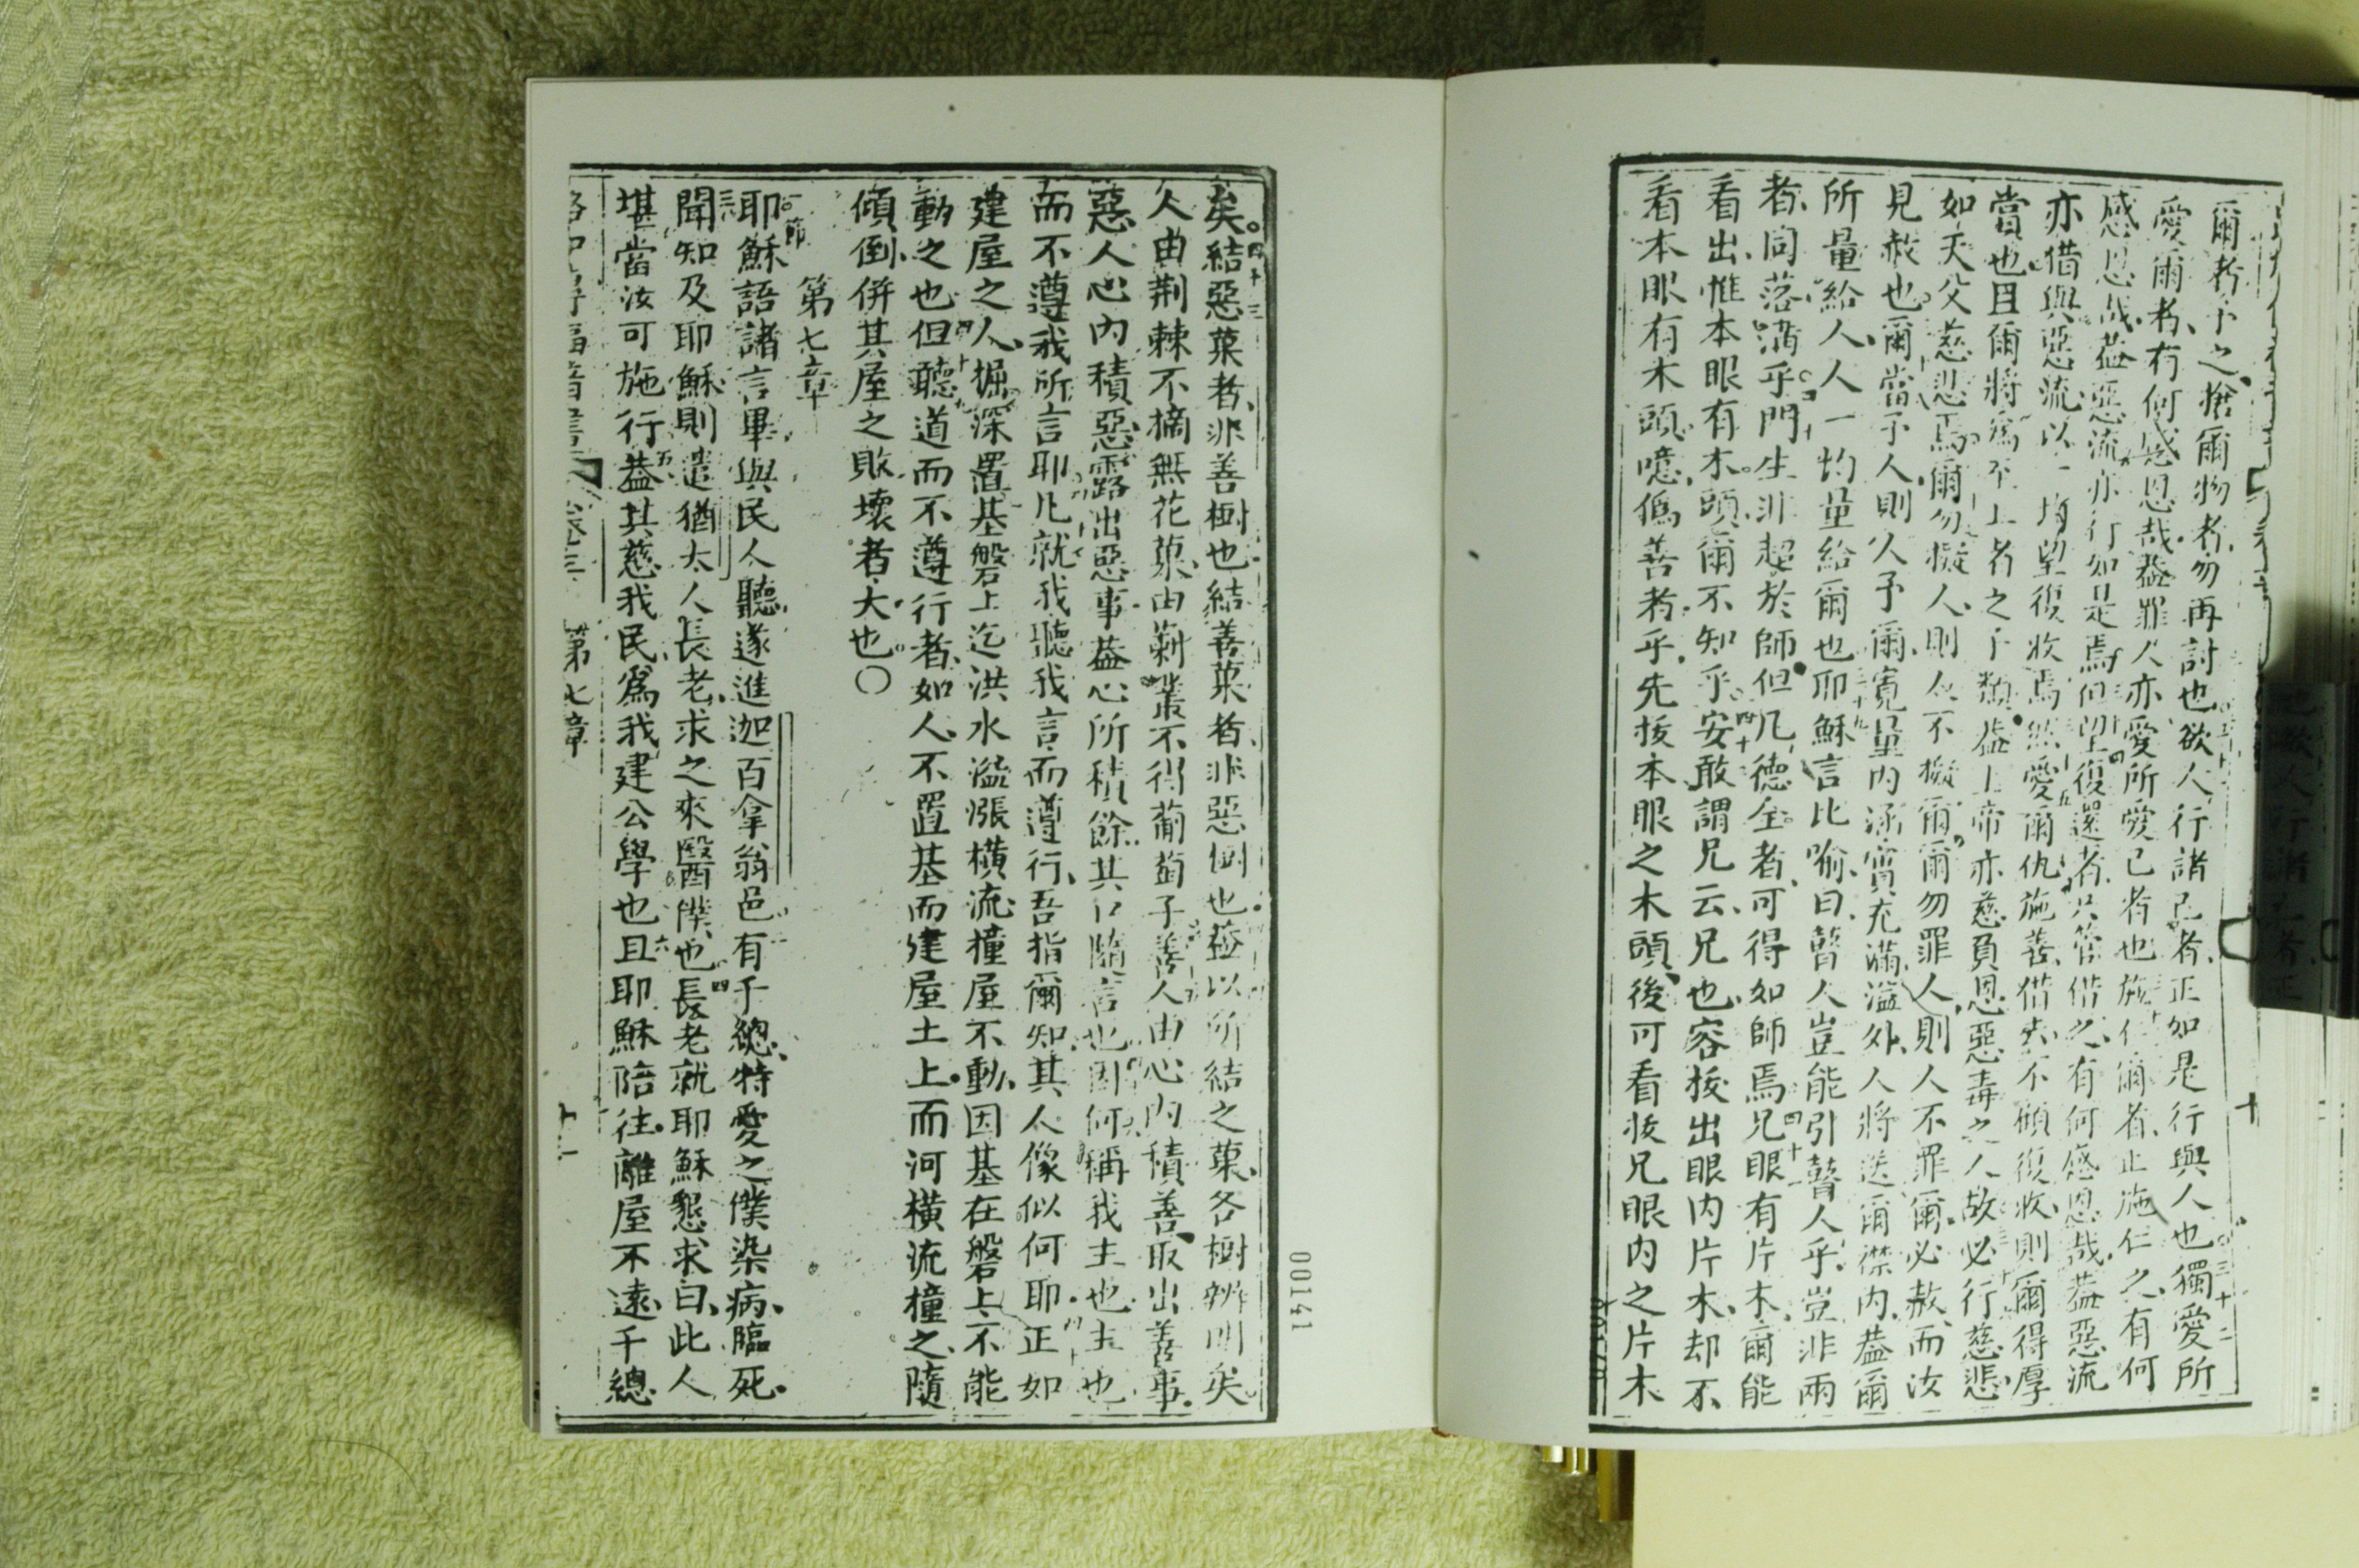 爾者予之搶爾物者勿再討也欲人行諸己者正如是行與人也獨愛所
愛爾者有何感恩哉蓋罪人亦愛所愛己者也施仁爾者止施仁之有何
感恩哉蓋惡流亦行如是焉但望復還者只管借之有何感恩哉蓋惡流
亦借與惡流以一均望復收焉然愛爾仇施善借去不顧復收則爾得厚
賞也且爾將為至上者之子類蓋上帝亦慈負恩惡毒之人故必行慈悲
如天父慈忍焉爾勿擬人則人不擬爾爾勿罪人則人不罪爾必赦而汝
見赦也爾當予人則人予爾寬量內涵實充滿溢外人將送爾襟內蓋爾
所量給人人一均量給爾也耶穌言比喻曰瞽人豈能引瞽人乎豈非兩
者同落溝乎門生非超於師但凡德全者可得如師焉兄眼有片木爾能
看出惟本眼有木頭爾不知乎安敢謂兄云兄也容拔出眼內片木却不
看本眼有木頭噫偽善者乎先拔本眼之木頭後可看拔兄眼內之片木
十
矣結惡菓者非善樹也結善菓者非惡樹也蓋以所結之菓各樹辨明矣
人由荊棘不摘無花菓由蓾叢不得葡萄子善人由心內積善取出善事
惡人心內積惡露出惡事蓋心所積餘其口隨言也因何稱我主也主也
而不遵我所言耶凡就我聽我言而遵行吾指爾知其人像似何耶正如
建屋之人掘深置基磐上迄洪水溢漲橫流撞屋不動因基在磐上不能
動之也但聽道而不遵行者如人不置基而建屋土上而河橫流撞之隨
傾倒併其屋之敗壞者大也〇
第七章
耶穌語諸言畢與民人聽遂進迦百拿翁邑有千總特愛之僕染病臨死
聞知及耶穌則遣猶太人長老求之來醫僕也長老就耶穌懇求曰此人
堪當汝可施行蓋其慈我民為我建公學也且耶穌陪往離屋不遠千總
卷三 第七章 十一
00141